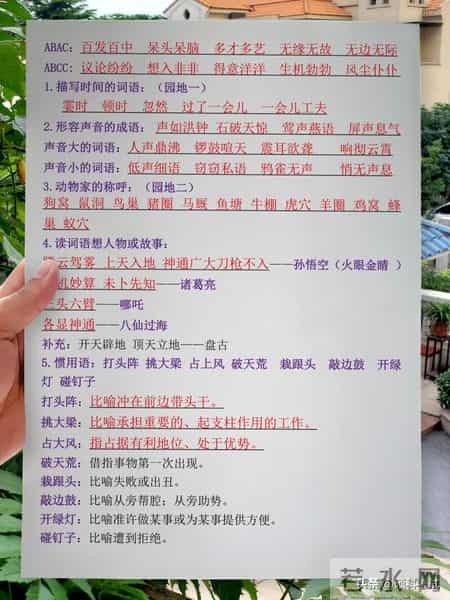 ABAC：百发百中 呆头呆脑 多才多艺 无缘无故 无边无际
ABCC：议论纷纷 想入非非 得意洋洋 生机勃勃 风尘仆仆
1.描写时间的词语：（园地一）
霎时 顿时 忽然 过了一会儿 一会儿工夫
2.形容声音的成语：声如洪钟 石破天惊 莺声燕语 屏声息气
声音大的词语：人声鼎沸 锣鼓喧天 震耳欲聋 响彻云霄
声音小的词语：低声细语 窃窃私语 鸦雀无声 悄无声息
3.动物家的称呼：（园地二）
狗窝 鼠洞 鸟巢 猪圈 马厩 鱼塘 牛棚 虎穴 羊圈 鸡窝 蜂
巢 蚁穴
4.读词语想人物或故事：
云驾雾 上天入地 神通广大刀枪不入——孙悟空（火眼金睛 ）
机妙算 未卜先知——诸葛亮
头六臂——哪吒
各显神通——八仙过海
补充：开天辟地 顶天立地——盘古
5.惯用语：打头阵 挑大梁 占上风 破天荒 栽跟头 敲边鼓 开绿
灯 碰钉子
打头阵：比喻冲在前边带头干。
挑大梁：比喻承担重要的、起支柱作用的工作。
占大风：指占据有利地位、处于优势。
破天荒：借指事物第一次出现。
栽跟头：比喻失败或出丑。
敲边鼓：比喻从旁帮腔；从旁助势。
开绿灯：比喻准许做某事或为某事提供方便。
碰钉子：比喻遭到拒绝。
若水网
头条